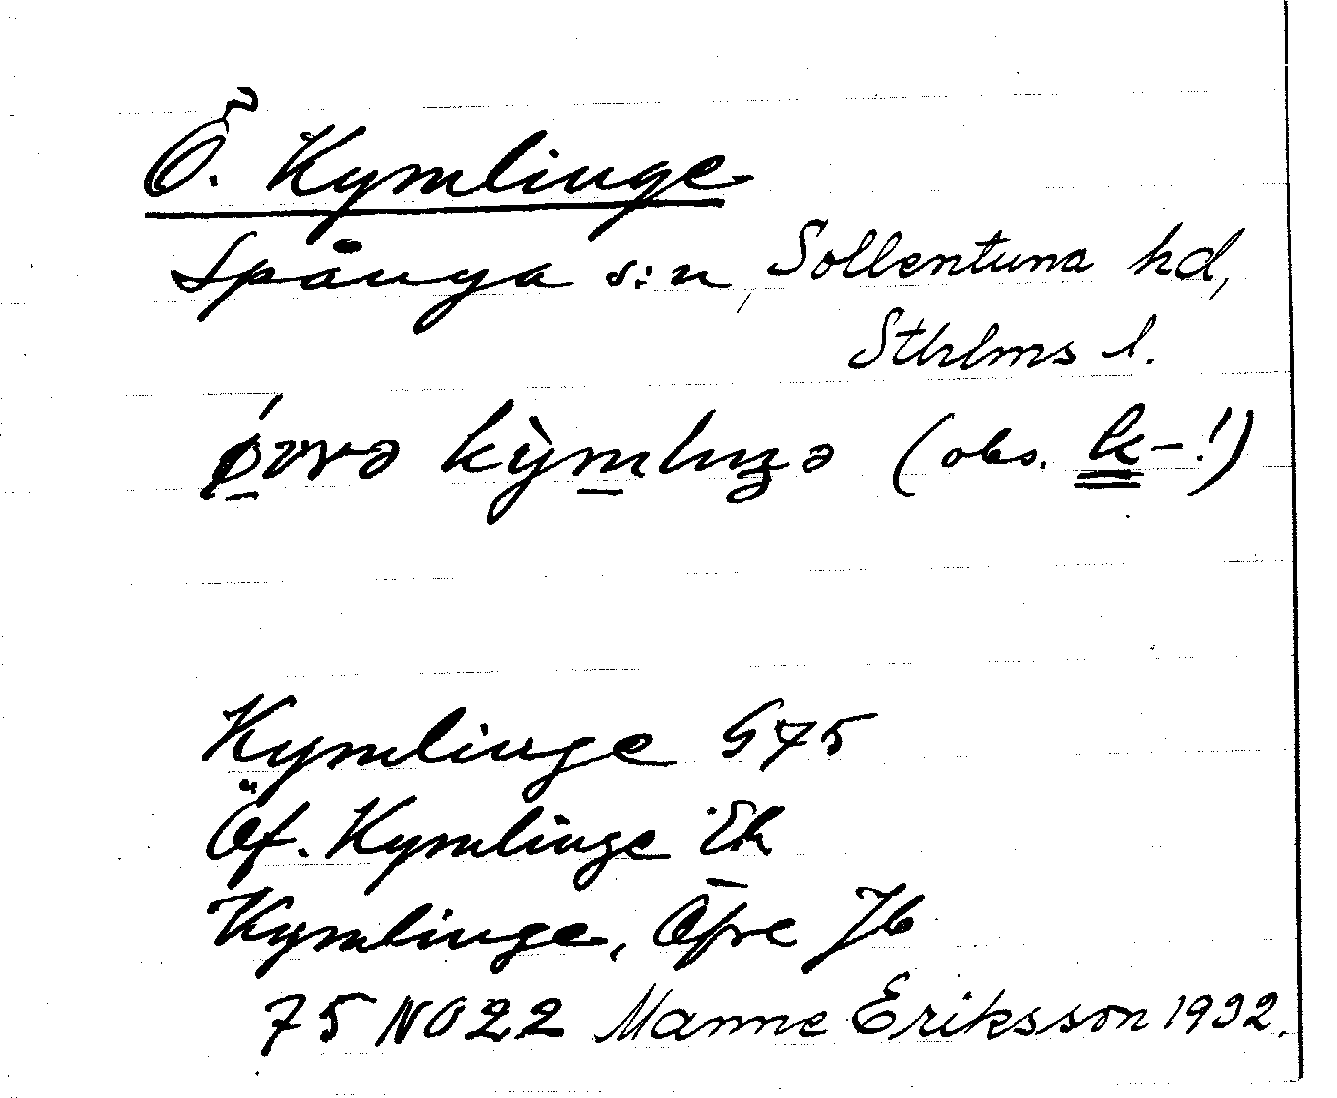 Ö. Kymlinge
Spånga s:n, Sollentuna hd,
Sthlms l.
kỳmlıŋə (obs. k-!)
Kymlinge G75
Öf. Kymlinge Ek
Kymlinge, Öfre Jb
75 NO 22 Manne Eriksson 1932.